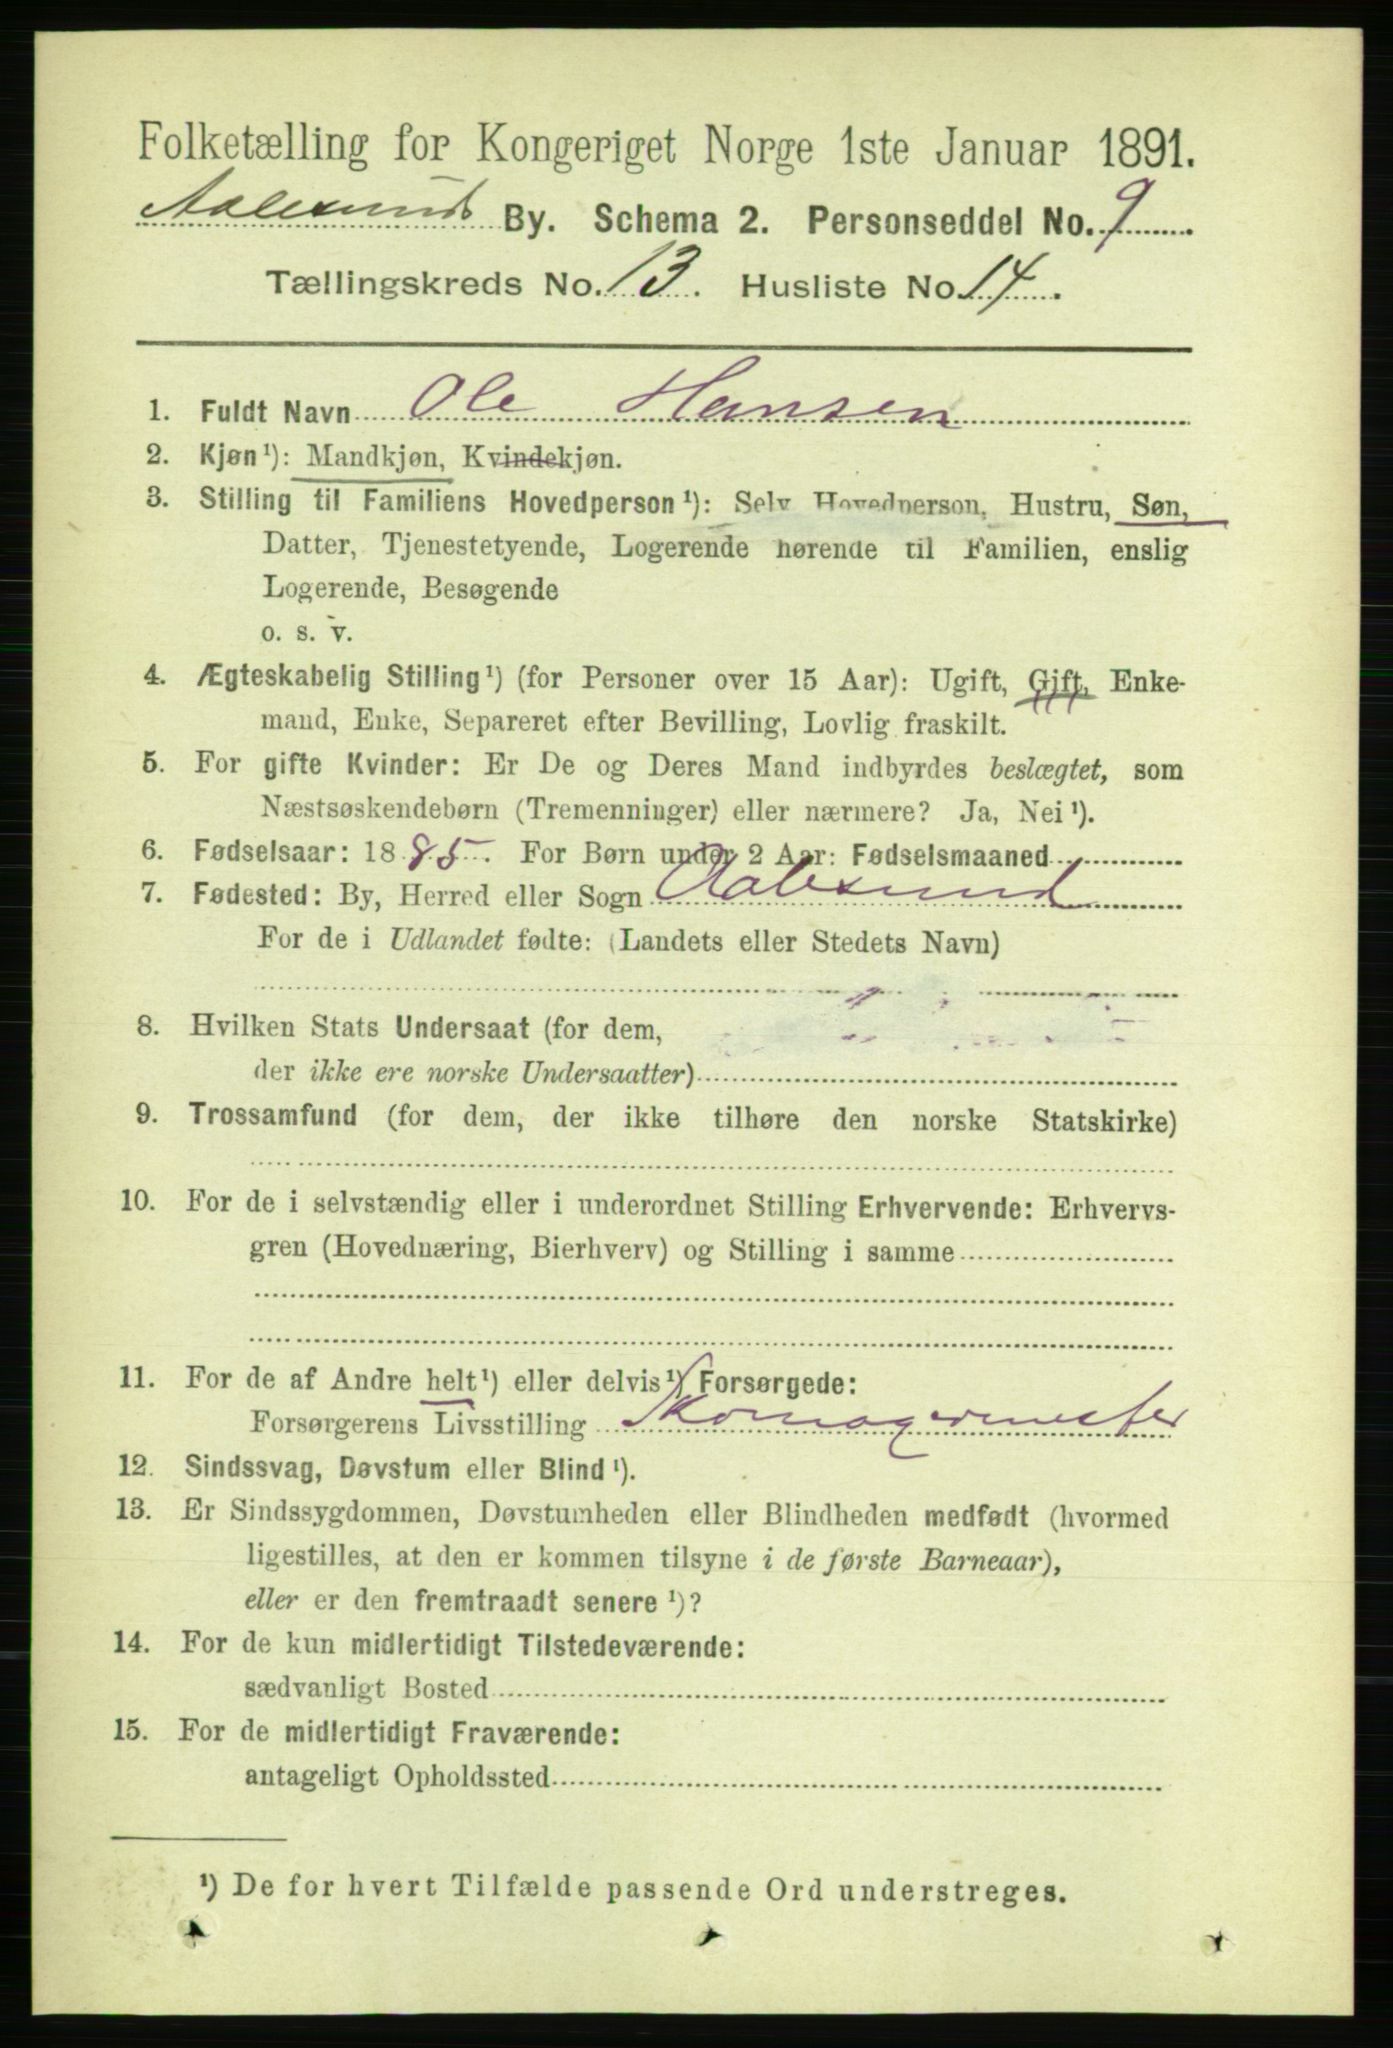 Folketælling for Kongeriget Norge 1ste Januar 1891.
Aalesund By. Schema 2. Personseddel No. 9
Tællingskreds No. 13. Husliste No. 14.
1. Fuldt Navn Ole Hansen
2. Kjøn ¹): Mandkjøn, Kvindekjøn.
3. Stilling til Familiens Hovedperson ¹): Selv Hovedperson, Hustru, Søn,
Datter, Tjenestetyende, Logerende hørende til Familien, enslig
Logerende, Besøgende
o. s. v.
4. Ægteskabelig Stilling ¹) (for Personer over 15 Aar): Ugift, Gift, Enke-
mand, Enke, Separeret efter Bevilling, Lovlig fraskilt.
5. For gifte Kvinder: Er De og Deres Mand indbyrdes beslægtet, som
Næstsøskendebørn (Tremenninger) eller nærmere? Ja, Nei ¹).
6. Fødselsaar: 1885. For Børn under 2 Aar: Fødselsmaaned
7. Fødested: By, Herred eller Sogn Aalesund
For de i Udlandet fødte: (Landets eller Stedets Navn)
8. Hvilken Stats Undersaat (for dem,
der ikke ere norske Undersaatter)
9. Trossamfund (for dem, der ikke tilhøre den norske Statskirke)
10. For de i selvstændig eller i underordnet Stilling Erhvervende: Erhvervs-
gren (Hovednæring, Bierhverv) og Stilling i samme
11. For de af Andre helt ¹) eller delvis ¹) Forsørgede:
Forsørgerens Livsstilling Skomagermester
12. Sindssvag, Døvstum eller Blind ¹).
13. Er Sindssygdommen, Døvstumheden eller Blindheden medfødt (hvormed
ligestilles, at den er kommen tilsyne i de første Barneaar),
eller er den fremtraadt senere ¹)?
14. For de kun midlertidigt Tilstedeværende:
sædvanligt Bosted
15. For de midlertidigt Fraværende:
antageligt Opholdssted
¹) De for hvert Tilfælde passende Ord understreges.